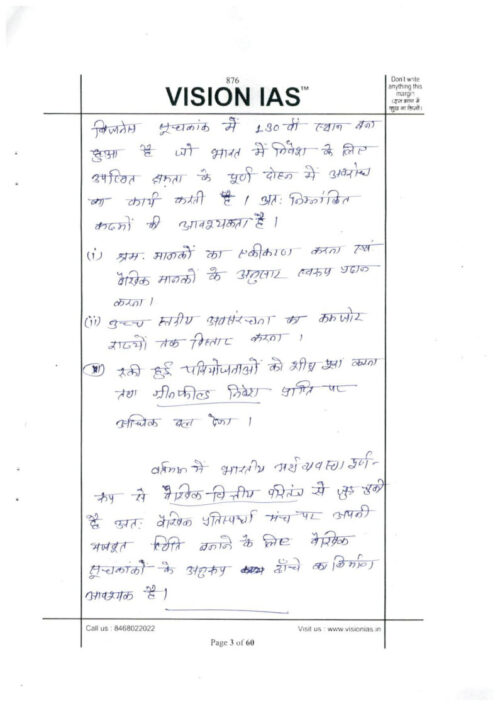 876
VISION IAS™
Don't write
anything this
margin
(इस भाग में
कुछ ना लिखें)
बिजनेस सूचकांक में 130 वाँ स्थान बना
हुआ है जो भारत में निवेश के लिए
उपस्थित क्षमता के पूर्ण दोहन में अवरोध
का कार्य करती है। अतः निम्नांकित
कदमों की आवश्यकता है।
(i) श्रम मानकों का एकीकरण करना एवं
वैश्विक मानकों के अनुसार स्वरूप प्रदान
करना।
(ii) उच्च स्तरीय अवसंरचना का कमजोर
राज्यों तक विस्तार करना।
रुकी हुई परियोजनाओं को शीघ्र पूरा करना
तथा ग्रीनफील्ड निवेश प्राप्ति पर
अधिक बल देना।
वर्तमान में भारतीय अर्थव्यवस्था पूर्ण-
रूप से वैश्विक-वित्तीय परितंत्र से जुड़ चुकी
है अतः वैश्विक प्रतिस्पर्धा मंच पर अपनी
मजबूत स्थिति बनाने के लिए वैश्विक
सूचकांकों के अनुरूप ढाँचे का निर्माण
आवश्यक है।
Call us : 8468022022
Visit us : www.visionias.in
Page 3 of 60